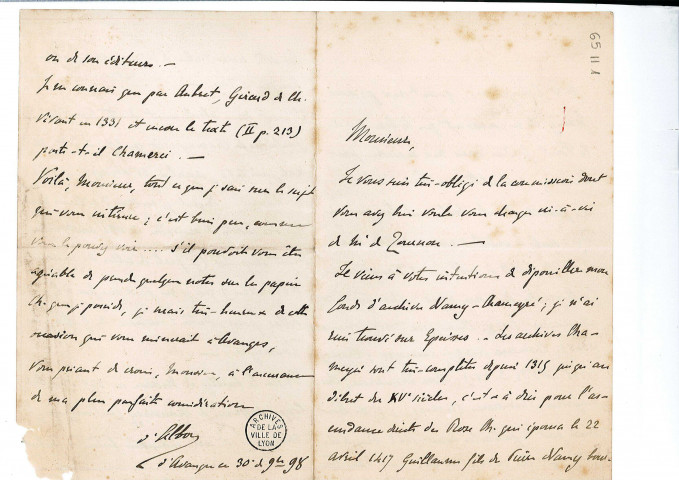 65 II 1
Monsieur,
Je vous suis très-obligé de la commission dont
vous avez bien voulu vous charger vis-à-vis
de Mr de Tournon. —
Je viens à votre intention de dépouiller mon
fonds d'archives Nancy-Chameyré; je n'ai
rien trouvé sur Epeisses. — Les archives Cha-
meyré sont très-complètes depuis 1315 jusqu'au
début du XVe siècle, c'est à dire pour l'as-
cendance directe de Rose Ch. qui épousa le 22
avril 1417 Guillaume fils de Nancy
ou de son éditeur. —
Je ne connais que par Aubret, Girard de Ch.
vivant en 1331 et encore le texte (II p. 213)
porte-t-il Chamerci. —
Voilà, Monsieur, tout ce que je sais sur le sujet
qui vous intéresse; c'est bien peu, comme
vous le pouvez voir .... S'il pouvait vous être
agréable de prendre quelques notes sur les papiers
Ch. que je possède, je serais très-heureux de cette
occasion qui vous mènerait à Avanges,
Vous priant de croire, Monsieur, à l'assurance
de ma plus parfaite considération
d'Albon
d'Avanges ce 30 de 9bre 98
ARCHIVES
DE LA
VILLE DE
LYON